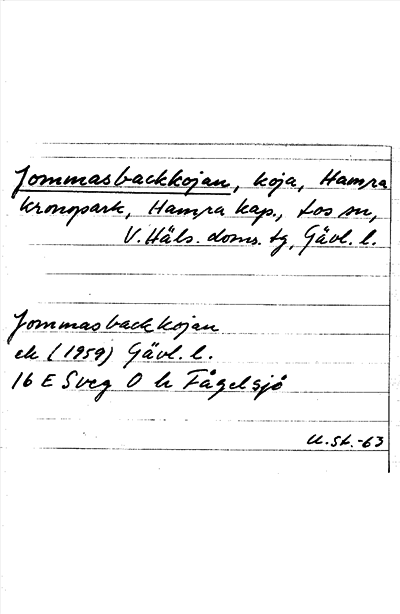 Jommasbackkojan, koja, Hamra
kronopark, Hamra kap., Los sn,
V. Häls. doms. tg, Gävl. l.
Jommasbackkojan
ek (1959) Gävl. l.
16 E Sveg O h Fågelsjö
U.St.-63